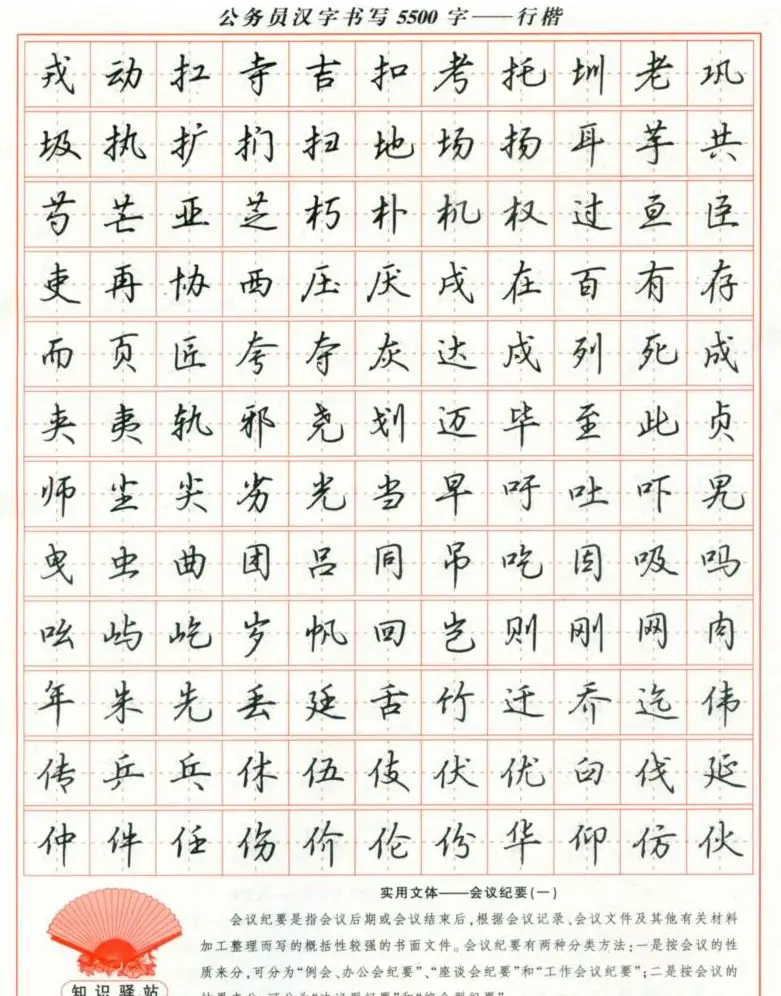 公务员汉字书写5500字——行楷
戎动扛寺吉扣考托圳老巩
圾执扩扪扫地场扬耳芋共
芍芒亚芝朽朴机权过亘臣
吏再协西压厌戌在百有存
而页匠夸夺灰达戍列死成
夹夷轨邪尧划迈毕至此贞
师尘尖劣光当早吁吐吓男
曳虫曲团吕同吊吃因吸吗
吆屿屹岁帆回岂则刚网肉
年朱先丢廷舌竹迁乔迄伟
传乒乓休伍伎伏优臼伐延
仲件任伤价伦份华仰仿伙
实用文体——会议纪要(一)
会议纪要是指会议后期或会议结束后,根据会议记录、会议文件及其他有关材料
加工整理而写的概括性较强的书面文件。会议纪要有两种分类方法:一是按会议的性
质来分,可分为“例会、办公会纪要”、“座谈会纪要”和“工作会议纪要”;二是按会议的
知识驿站